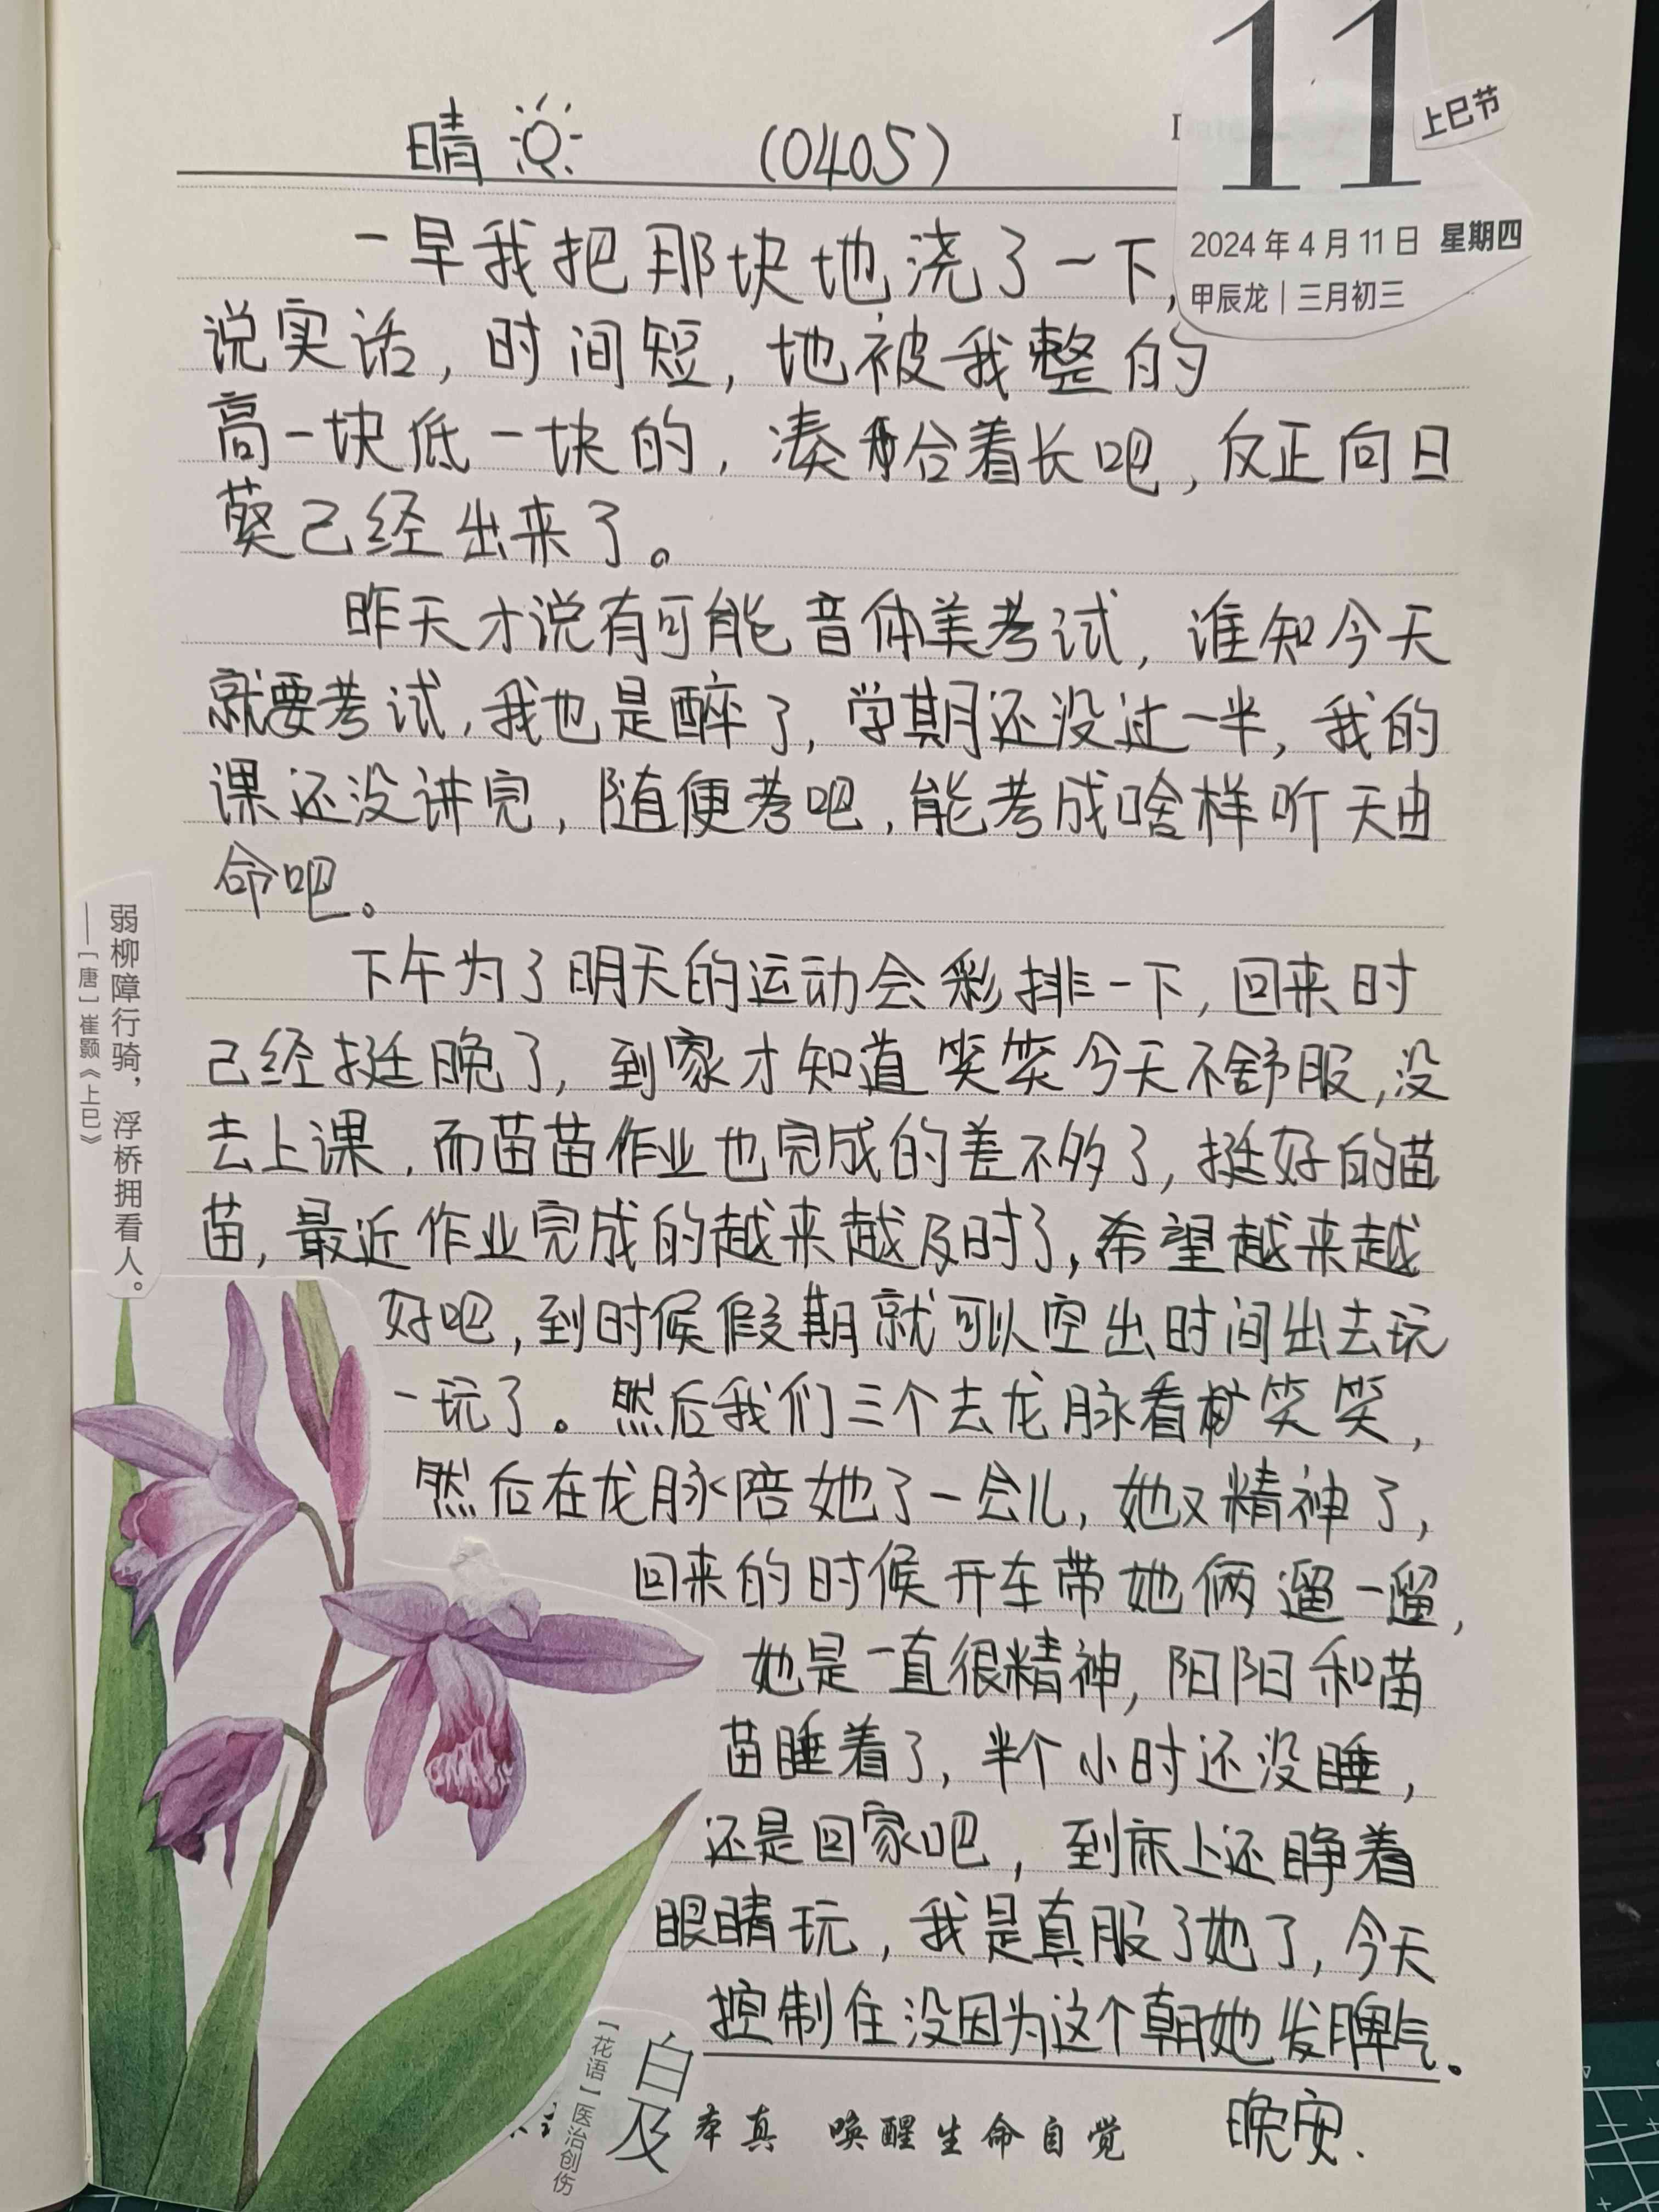 晴 (0405)
11
上巳节
2024年4月11日 星期四
甲辰龙|三月初三
一早我把那块地浇了一下,
说实话,时间短,地被我整的
高一块低一块的,凑合着长吧,反正向日
葵已经出来了。
昨天才说有可能音体美考试,谁知今天
就要考试,我也是醉了,学期还没过一半,我的
课还没讲完,随便考吧,能考成啥样听天由
命吧。
下午为了明天的运动会彩排一下,回来时
已经挺晚了,到家才知道笑笑今天不舒服,没
去上课,而苗苗作业也完成的差不多了,挺好的苗
苗,最近作业完成的越来越及时了,希望越来越
好吧,到时候假期就可以空出时间出去玩
一玩了。然后我们三个去龙脉看笑笑,
然后在龙脉陪她了一会儿,她又精神了,
回来的时候开车带她俩遛一遛,
她是一直很精神,阳阳和苗
苗睡着了,半个小时还没睡,
还是回家吧,到床上还睁着
眼睛玩,我是真服了她了,今天
控制住没因为这个朝她发脾气。
晚安.
弱柳障行骑,浮桥拥看人。
——[唐]崔颢《上巳》
白及
【花语】医治创伤
本真 唤醒生命自觉